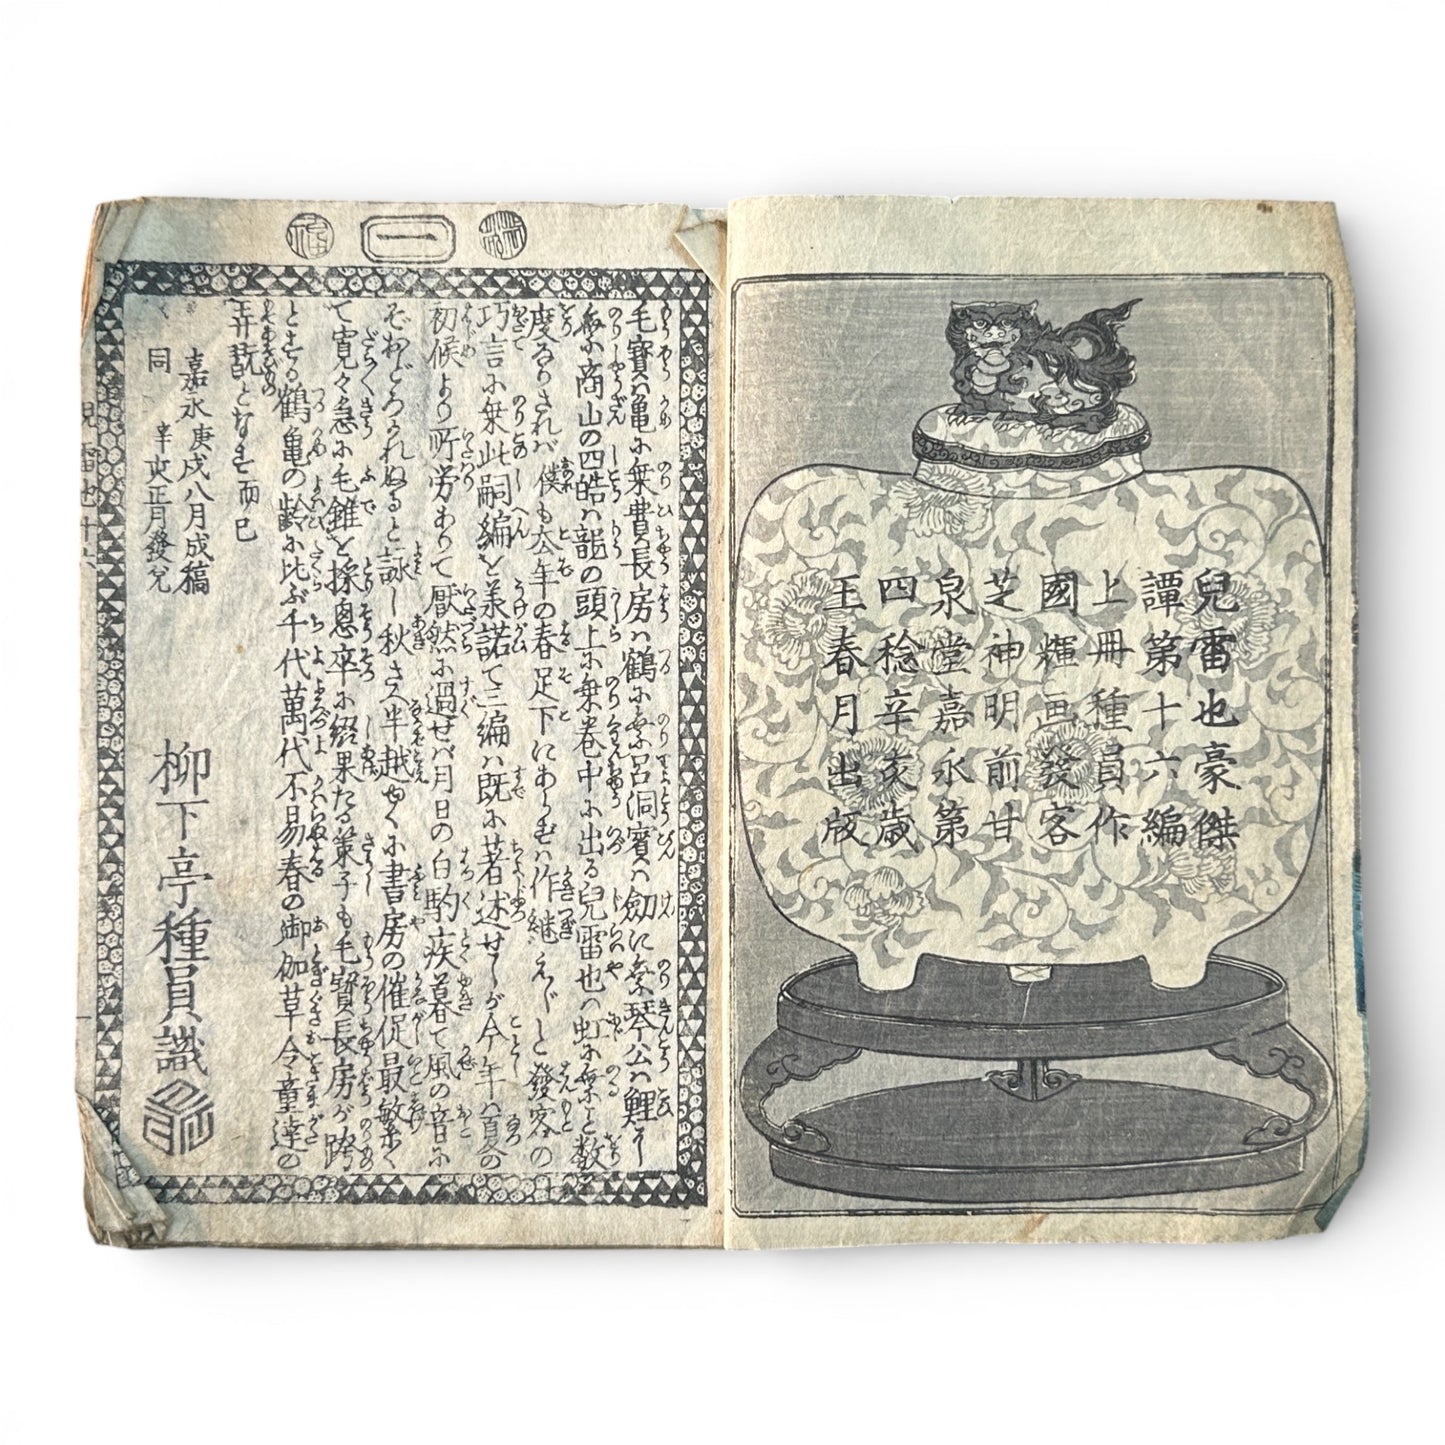 兒雷也豪傑
譚第十六編
上冊種員作
國輝画發客
芝神明前甘
泉堂嘉永第
四稔辛亥歳
王春月出版
一
毛寳ハ亀に乗費長房ハ鶴に乗呂洞賓ハ劔に乗琴公ハ鯉に
乗商山の四皓ハ龍の頭上に乗巻中に出る兒雷也ハ虹に乗と数
度なりされバ僕も去年の春足下にあらむハ作継えじと發客の
巧言に乗此嗣編を美諾て三編ハ既に著述せしが今年ハ夏の
初候より所労ありて厭然に過せバ月日の白駒疾暮て風の音に
ぞおどろかれぬると詠し秋さへ半越やくに書房の催促最繁く
て寛々急に毛錐を採悤卒に綴果たる策子も毛寳長房が跨
とする鶴亀の齢に比ぶ千代萬代不易春の御伽草令童達の
弄翫となす而已
嘉永庚戌八月成稿
同辛亥正月發兌
柳下亭種員識